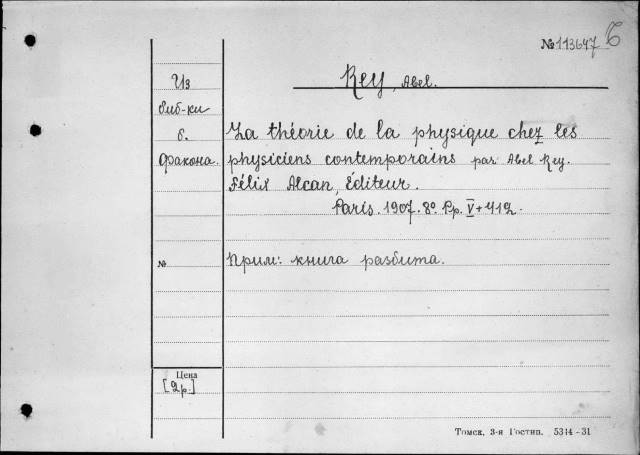 №113647 Б
Rey, Abel.
Из
биб-ки
б.
Факона.
La théorie de la physique chez les
physiciens contemporains par Abel Rey.
Félix Alcan, Éditeur.
Paris. 1907. 8º. Pp. V+412.
№
Прим: книга разбита.
Цена
[2р.]
Томск, 3-я Гостип. 5344-31